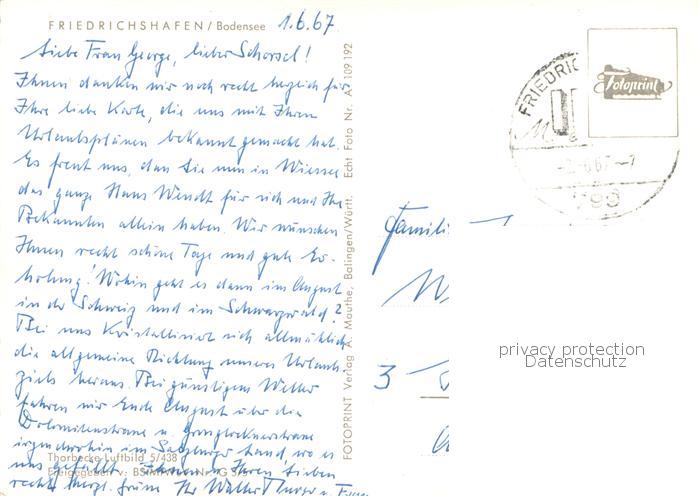 FRIEDRICHSHAFEN/Bodensee
1.6.67
Liebe Frau George, lieber Schorsel!
Ihnen danken wir noch recht herzlich für
Ihre liebe Karte, die uns mit Ihren
Urlaubsplänen bekannt gemacht hat.
Es freut uns, dan Sie nun in Wiessee
das ganze Haus Wendt für sich und Ihre
Bekannten allein haben. Wir wünschen
Ihnen recht schöne Tage und gute Er-
holung! Wohin geht es dann im August
in der Schweiz und im Schwarzwald?
Bei uns kristallisiert sich allmählich
die allgemeine Richtung unseres Urlaubs-
ziels heraus. Bei günstigem Wetter
fahren wir Ende August über die
Dolomitenstrasse u. Grossglocknerstrasse
irgendwohin im Salzburger Land, wo es
uns gefällt. Ihnen u. Ihren Lieben
recht herzl. Grüsse Ihr Walter u. Frau
Thorbecke-Luftbild 5/438
Freigegeben v.
FOTOPRINT Verlag A. Mauthe, Balingen/Württ. Echt Foto Nr. A 109 192
Fotoprint
FRIEDRIC
67-7
799
Famili
W
3
privacy protection
Datenschutz